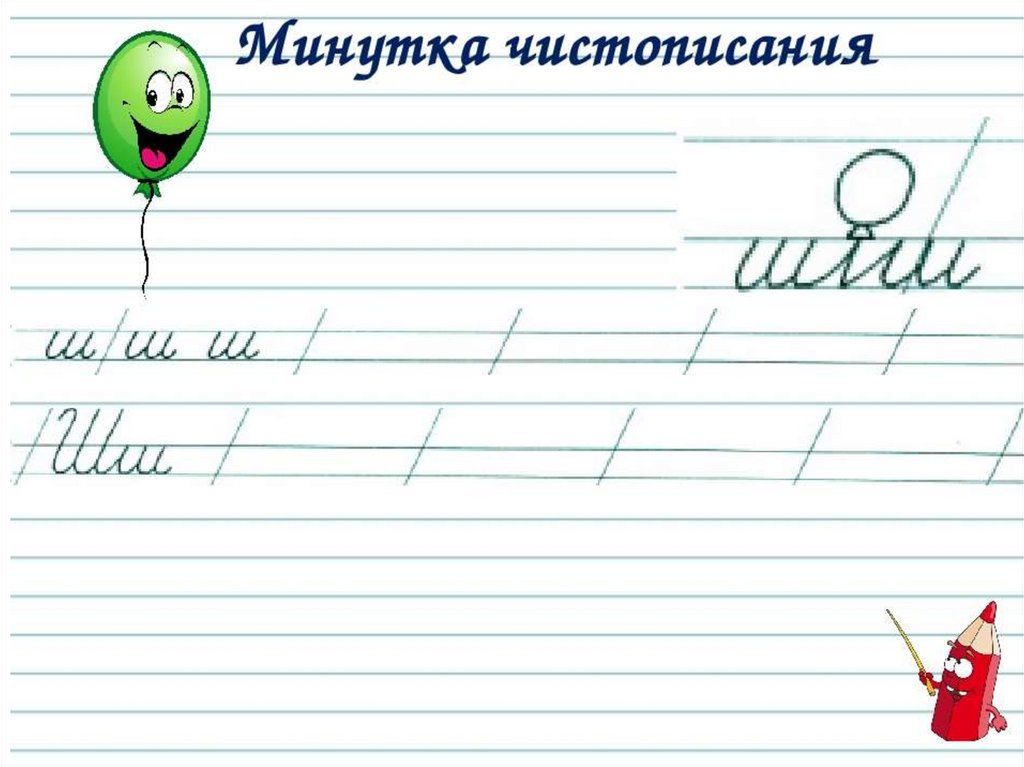 Минутка чистописания
ш ш ш
Шш